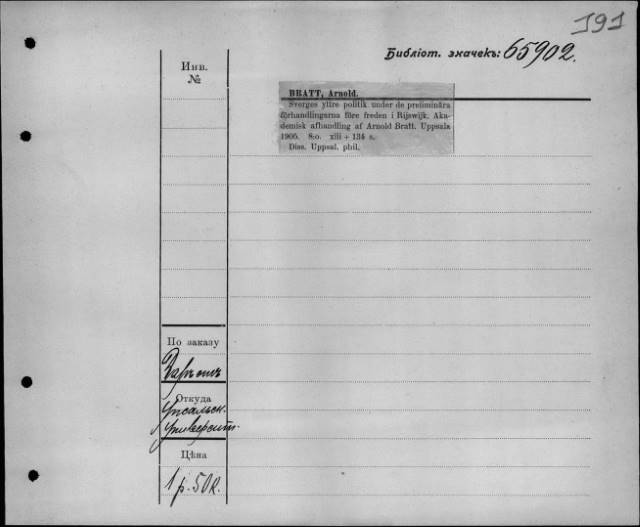 191
Библіот. значекъ: 65902.
Инв.
№
BRATT, Arnold.
Sverges yttre politik under de preliminära
förhandlingarna före freden i Rijswijk. Aka-
demisk afhandling af Arnold Bratt. Uppsala
1905. 8:o. xiii + 134 s.
Diss. Uppsal. phil.
По заказу
Откуда
Упсальск.
Университ.
Цѣна
1 р. 50 к.